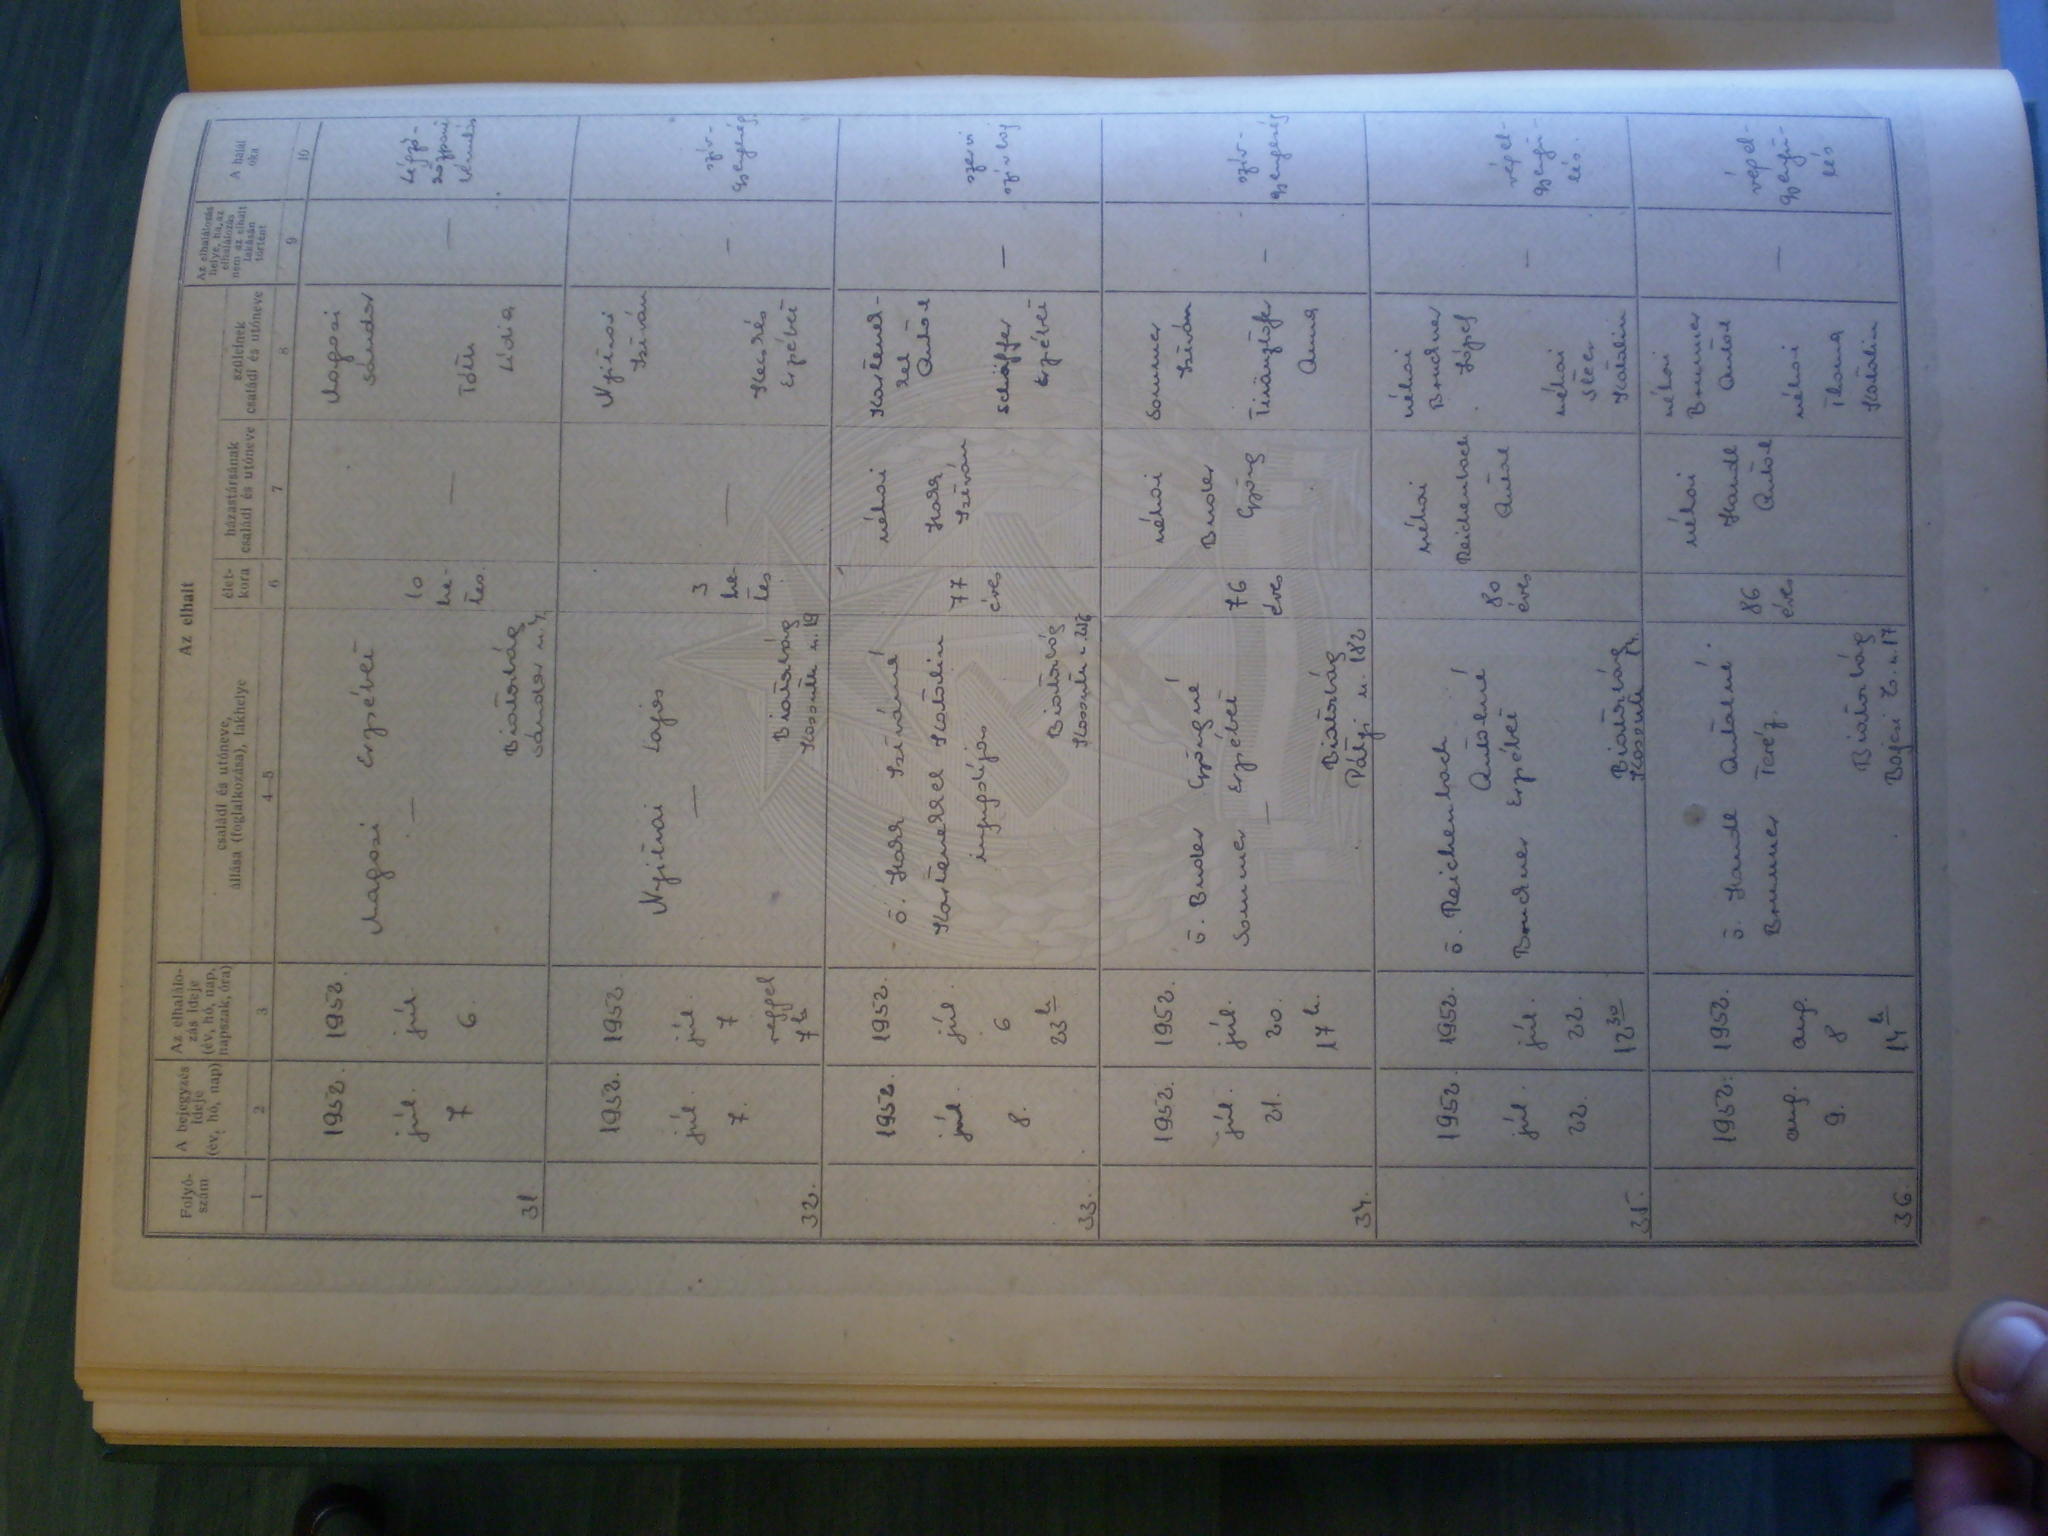 Folyó-
szám
A bejegyzés
ideje
(év, hó, nap)
Az elhalálo-
zás ideje
(év, hó, nap,
napszak, óra)
Az elhalt
családi és utóneve,
állása (foglalkozása), lakhelye
élet-
kora
házastársának
családi és utóneve
szüleinek
családi és utóneve
Az elhalálozás
helye, ha az
elhalálozás
nem az elhalt
lakásán
történt
A halál
oka
1
2
3
4—5
6
7
8
9
10
31
1952.
júl.
7
1952.
júl.
6.
Magosi Erzsébet
—
Biatorbág
Sándor u. 4.
10
he-
tes.
—
Magosi
Sándor
Tóth
Lídia
—
Légző-
központi
bénulás
32.
1952.
júl.
7.
1952.
júl.
7
reggel
7 h
Nyitrai Lajos
—
Biatorbág
Kossuth u. 19
3
he-
tes
—
Nyitrai
István
Kecskés
Erzsébet
—
szív-
gyengeség
33.
1952.
júl.
8.
1952.
júl.
6
23 h
ö. Istvánné
Katalin
Biatorbág
Kossuth u.
77
éves
néhai
István
Antal
Schäffer
Erzsébet
—
szervi
szívbaj
34.
1952.
júl.
21.
1952.
júl.
20.
17 h.
ö. Binder Györgyné
Sommer Erzsébet
—
Biatorbág
Pátyi u. 182
76
éves
néhai
Binder
György
Sommer
István
Anna
—
szív-
gyengeség
35.
1952.
júl.
22.
1952.
júl.
22.
12 30
ö. Reichenbach
Antalné
Erzsébet
Biatorbág
Kossuth
80
éves
néhai
Reichenbach
Antal
néhai
József
néhai
Katalin
—
végel-
gyengü-
lés.
36.
1952.
aug.
9.
1952.
aug.
8
14 h
ö. Handl Antalné.
Teréz.
Biatorbág
u. 17
86
éves
néhai
Handl
Antal
néhai
Antal
néhai
Katalin
—
végel-
gyengü-
lés